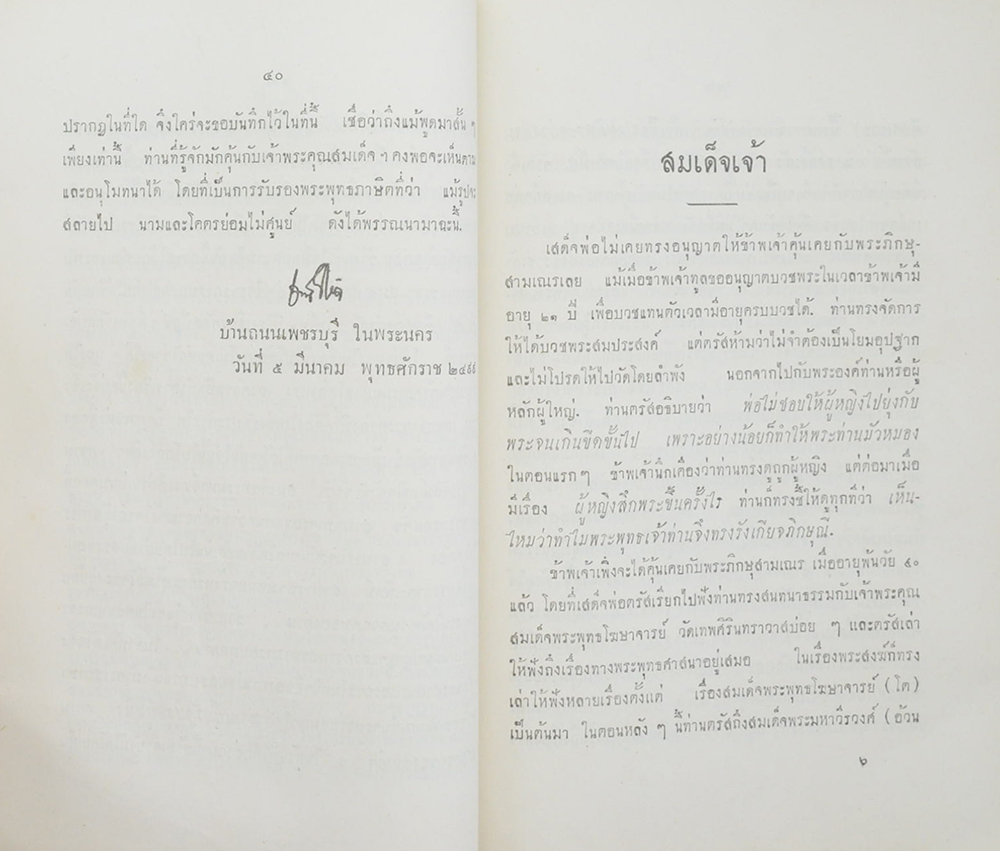 ๔๐
ปรากฏในที่ใด จึงใคร่จะขอบันทึกไว้ในที่นี้ เชื่อว่าถึงแม้พูดมาสั้น ๆ
เพียงเท่านี้ ท่านที่รู้จักมักคุ้นกับเจ้าพระคุณสมเด็จ ฯ คงพอจะเห็นตาม
และอนุโมทนาได้ โดยที่เป็นการรับรองพระพุทธภาษิตที่ว่า แม้รูปจะ
สลายไป นามและโคตรย่อมไม่ศูนย์ ดังได้พรรณนามาฉะนี้.
บ้านถนนเพชรบุรี ในพระนคร
วันที่ ๕ มีนาคม พุทธศักราช ๒๔๙๙
สมเด็จเจ้า
เสด็จพ่อไม่เคยทรงอนุญาตให้ข้าพเจ้าคุ้นเคยกับพระภิกษุ-
สามเณรเลย แม้เมื่อข้าพเจ้าทูลขออนุญาตบวชพระในเวลาข้าพเจ้ามี
อายุ ๒๑ ปี เพื่อบวชแทนตัวเวลามีอายุครบบวชได้. ท่านทรงจัดการ
ให้ได้บวชพระสมประสงค์ แต่ตรัสห้ามว่าไม่จำต้องเป็นโยมอุปฐาก
และไม่โปรดให้ไปวัดโดยลำพัง นอกจากไปกับพระองค์ท่านหรือผู้
หลักผู้ใหญ่. ท่านตรัสอธิบายว่า พ่อไม่ชอบให้ผู้หญิงไปยุ่งกับ
พระจนเกินขีดขั้นไป เพราะอย่างน้อยก็ทำให้พระท่านมัวหมอง
ในตอนแรกๆ ข้าพเจ้านึกเคืองว่าท่านทรงดูถูกผู้หญิง แต่ต่อมาเมื่อ
มีเรื่อง ผู้หญิงสึกพระขึ้นครั้งไร ท่านก็ทรงชี้ให้ดูทุกทีว่า เห็น-
ไหมว่าทำไมพระพุทธเจ้าท่านจึงทรงรังเกียจภิกษุณี.
ข้าพเจ้าเพิ่งจะได้คุ้นเคยกับพระภิกษุสามเณร เมื่ออายุพ้นวัย ๔๐
แล้ว โดยที่เสด็จพ่อตรัสเรียกไปฟังท่านทรงสนทนาธรรมกับเจ้าพระคุณ
สมเด็จพระพุทธโฆษาจารย์ วัดเทพศิรินทราวาสบ่อย ๆ และตรัสเล่า
ให้ฟังถึงเรื่องทางพระพุทธศาสนาอยู่เสมอ ในเรื่องพระสงฆ์ก็ทรง
เล่าให้ฟังหลายเรื่องตั้งแต่ เรื่องสมเด็จพระพุทธโฆษาจารย์ (โต)
เป็นต้นมา ในตอนหลัง ๆ นี้ท่านตรัสถึงสมเด็จพระมหาวีรวงศ์ (อ้วน
๖